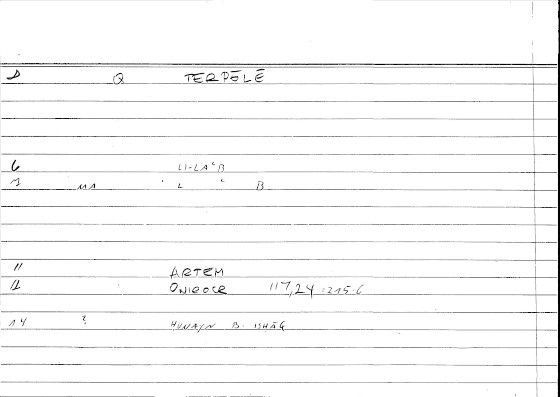 Q TERPŌLĒ
6 LI-LAʿB
MA L ʿ B
11 ARTEM
12 ONIROCR 117,24 :215.6
14 ? HUNAYN B. ISHĀQ